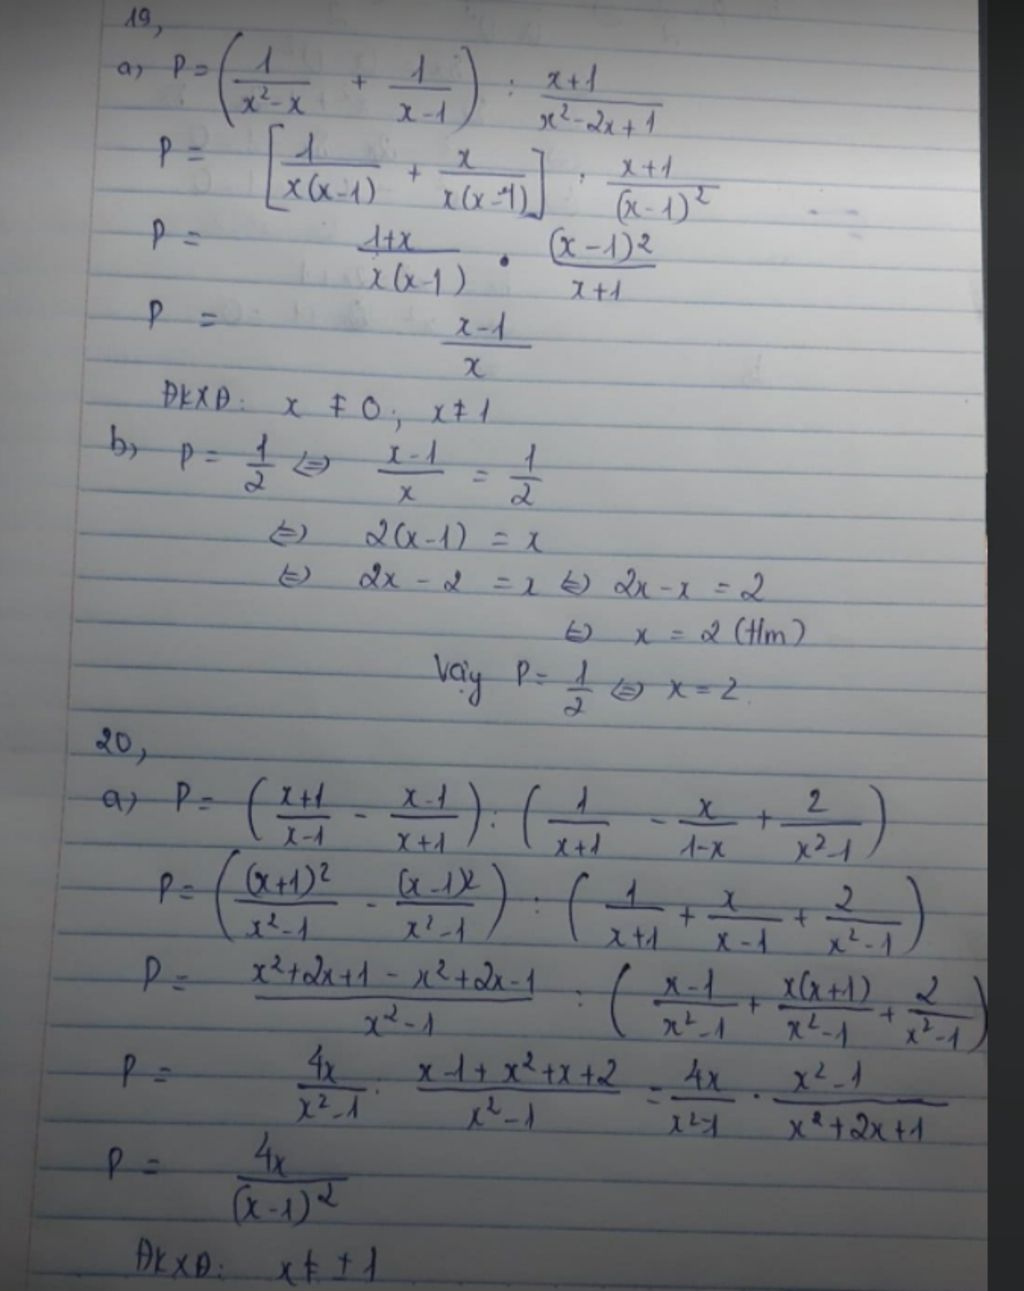 19,
a, P = (1/(x²-x) + 1/(x-1)) : (x+1)/(x²-2x+1)
P = [1/(x(x-1)) + x/(x(x-1))] : (x+1)/(x-1)²
P = (1+x)/(x(x-1)) • (x-1)²/(x+1)
P = (x-1)/x
ĐKXĐ: x ≠ 0; x ≠ 1
b, P = 1/2 ⇔ (x-1)/x = 1/2
⇔ 2(x-1) = x
⇔ 2x - 2 = x ⇔ 2x - x = 2
⇔ x = 2 (t/m)
Vậy P = 1/2 ⇔ x = 2.
20,
a, P = ((x+1)/(x-1) - (x-1)/(x+1)) : (1/(x+1) - x/(1-x) + 2/(x²-1))
P = ((x+1)²/(x²-1) - (x-1)²/(x²-1)) : (1/(x+1) + x/(x-1) + 2/(x²-1))
P = (x²+2x+1 - x²+2x-1)/(x²-1) : ((x-1)/(x²-1) + x(x+1)/(x²-1) + 2/(x²-1))
P = 4x/(x²-1) : (x-1+x²+x+2)/(x²-1) = 4x/(x²-1) . (x²-1)/(x²+2x+1)
P = 4x/(x-1)²
ĐKXĐ: x ≠ ±1